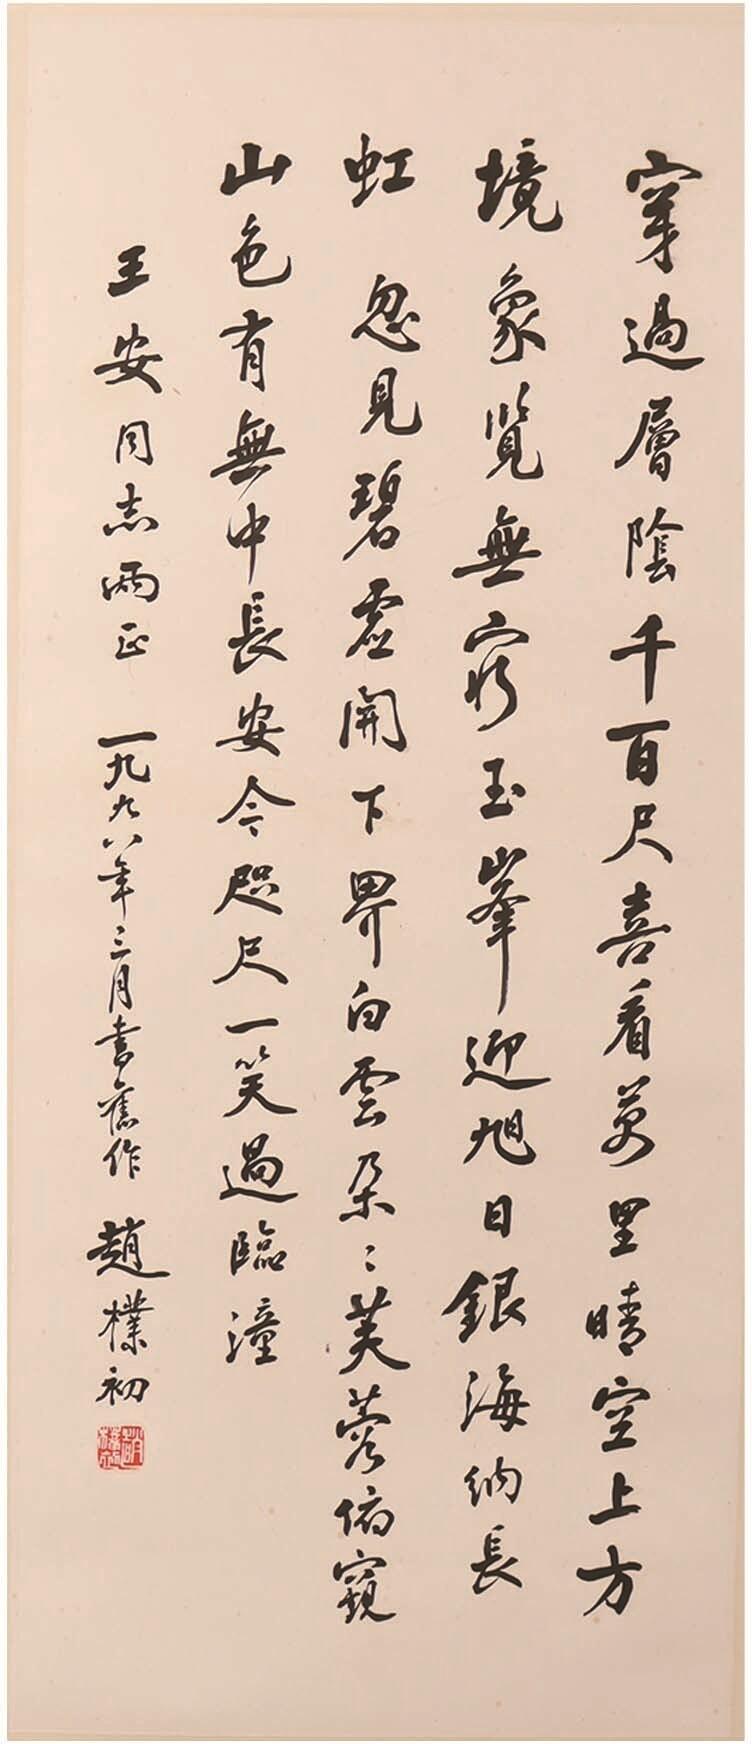 穿過層陰千百尺喜看萬里晴空上方
境象覽無窮玉峯迎旭日銀海納長
虹 忽見碧虛開下界白雲朵〻芙蓉俯窺
山色有無中長安今咫尺一笑過臨潼
王安同志兩正 一九九八年三月書舊作 趙樸初
趙樸初